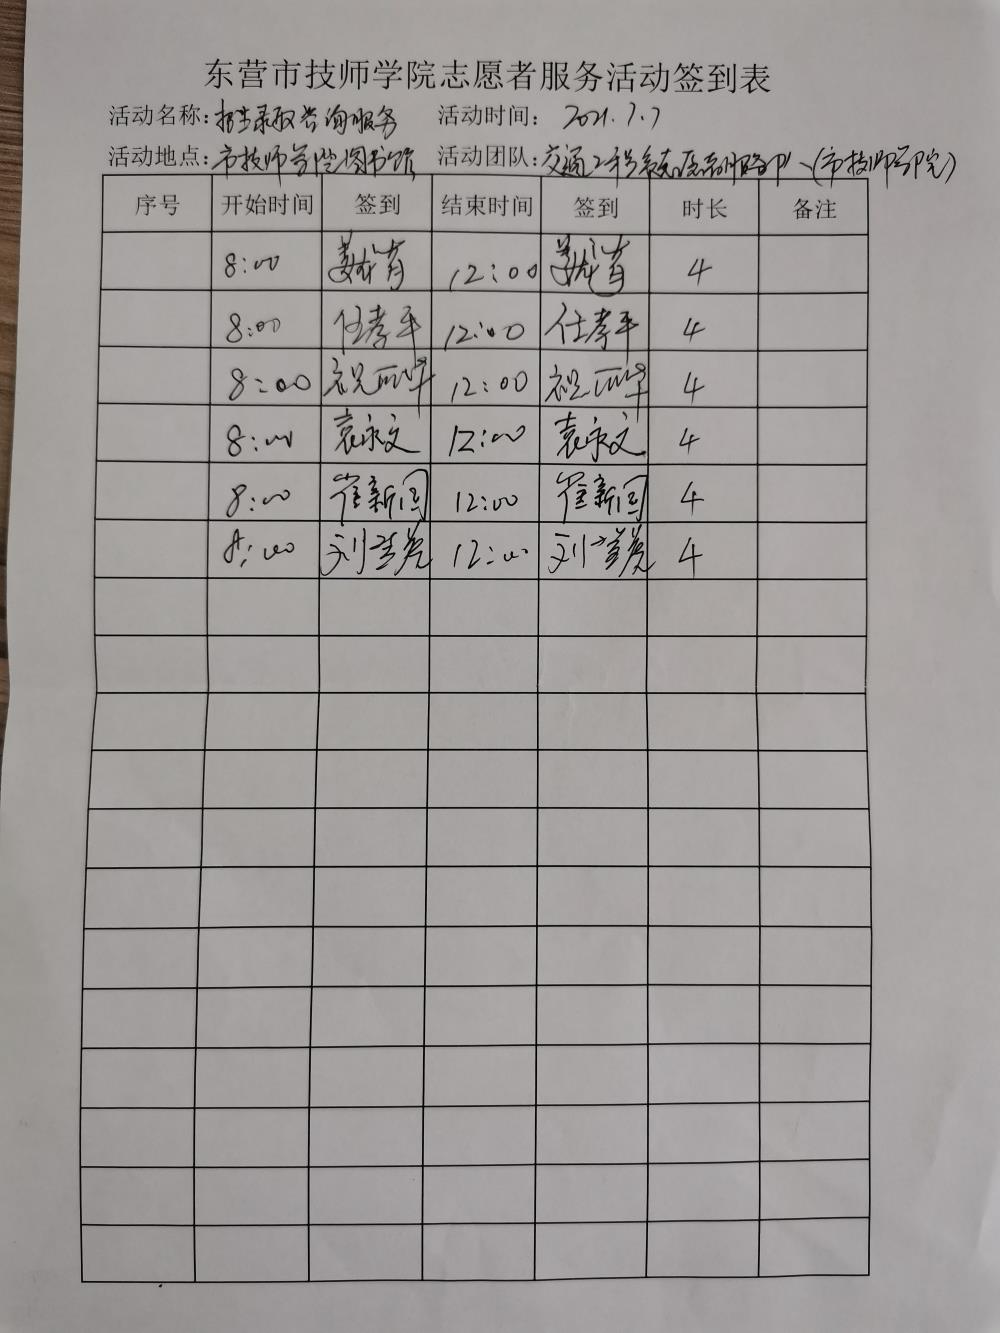 东营市技师学院志愿者服务活动签到表
活动名称：招生录取咨询服务 活动时间： 2021.7.7
活动地点：市技师学院图书馆 活动团队：交通工程系志愿者服务队（市技师学院）
序号 开始时间 签到 结束时间 签到 时长 备注
8:00 12:00 4
8:00 任孝平 12:00 任孝平 4
8:00 祝 12:00 祝 4
8:00 袁永文 12:00 袁永文 4
8:00 崔新国 12:00 崔新国 4
8:00 刘 12:00 刘 4